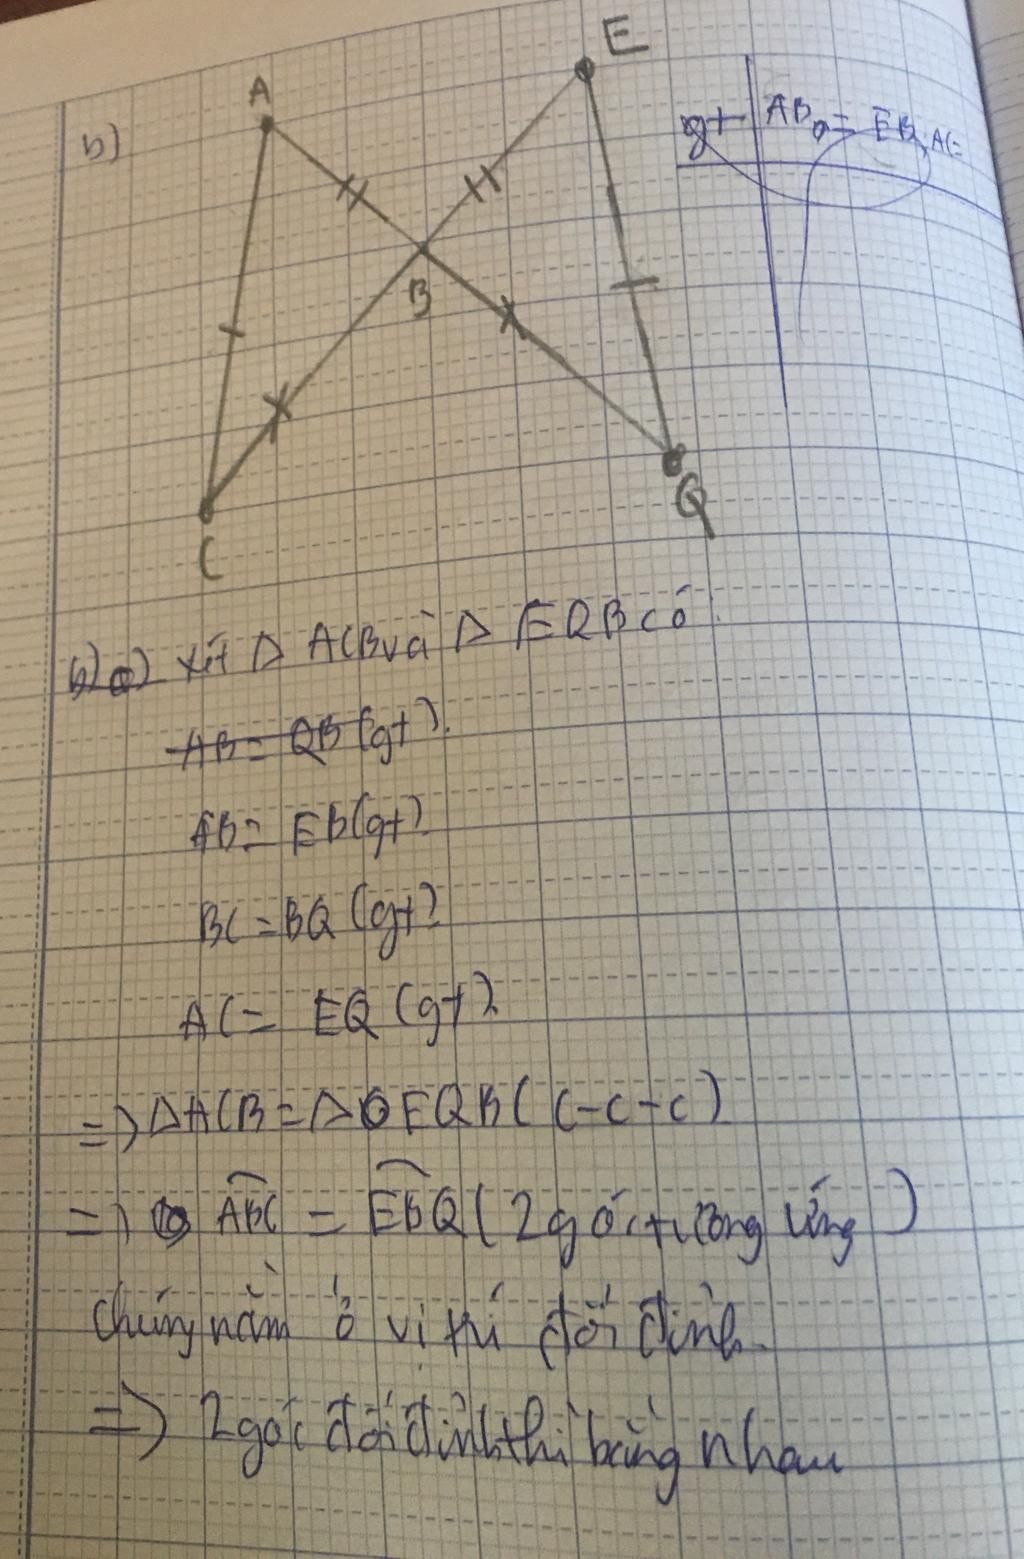 E
A
b)
gt AB = EB, AC =
B
Q
C
b) a) Xét Δ ACB và Δ EQB có
AB = QB (gt).
AB = EB (gt)
BC = BQ (gt)
AC = EQ (gt).
=> ΔACB = Δ EQB (c-c-c)
=> ABC = EBQ (2 góc tương ứng)
chúng nằm ở vị trí đối đỉnh.
=> 2 góc đối đỉnh thì bằng nhau